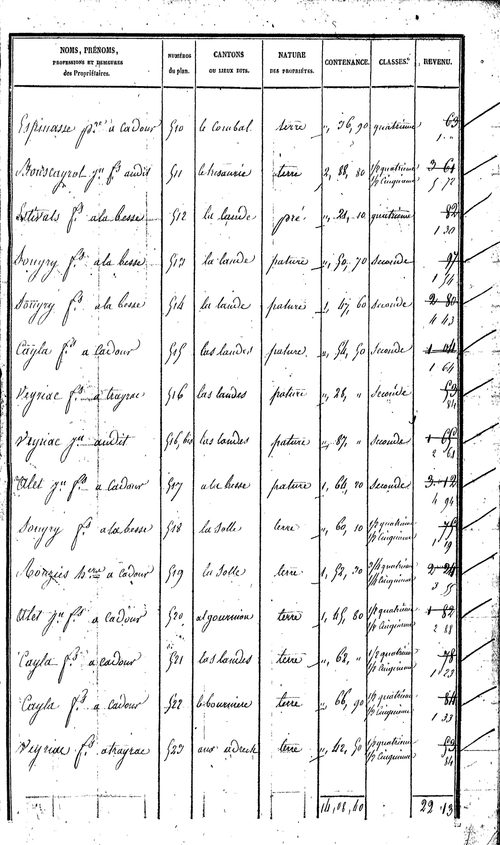 NOMS, PRÉNOMS, PROFESSIONS ET DEMEURES des Propriétaires. NUMÉROS du plan. CANTONS OU LIEUX DITS. NATURE DES PROPRIÉTÉS. CONTENANCE. CLASSES. REVENU.
Espinasse pre a cadour 510 le combal terre „ 36, 90 quatrieme 63
1 „
Bouscayrol jn fs audit 511 terre 2, 88, 80 1/2 quatrieme 3 61
1/2 cinquieme 5 72
Estivals fs a la besse 512 la lande pré „ 21, 10 quatrieme 82
1 30
Sougry fs a la besse 513 la lande pature „ 50, 70 seconde 97
1 54
Sougry fs a la besse 514 la lande pature 1, 47, 60 seconde 2 80
4 43
Cayla fs a cadour 515 las landes pature „ 54, 50 seconde 1 04
1 64
Veyriac fs a trayrac 516 las landes pature „ 28, „ seconde 53
84
Veyriac jn audit 516, bis las landes pature „ 87, „ seconde 1 65
2 61
Alet jn fs a cadour 517 a la besse pature 1, 64, 70 seconde 3 12
4 94
Sougry fs a la besse 518 la Solle terre „ 60, 10 1/2 quatrieme 75
1/2 cinquieme 1 19
a cadour 519 la Solle terre 1, 52, 30 quatrieme 2 24
cinquieme 3 55
Alet jn fs a cadour 520 terre 1, 45, 80 1/2 quatrieme 1 82
1/2 cinquieme 2 88
Cayla fs a cadour 521 las landes terre „ 62, „ 1/2 quatrieme 78
1/2 cinquieme 1 23
Cayla fs a cadour 522 terre „ 66, 90 1/2 quatrieme 84
1/2 cinquieme 1 33
Veyriac fs a trayrac 523 terre „ 42, 50 1/2 quatrieme 53
1/2 cinquieme 84
14, 08, 40 22 13